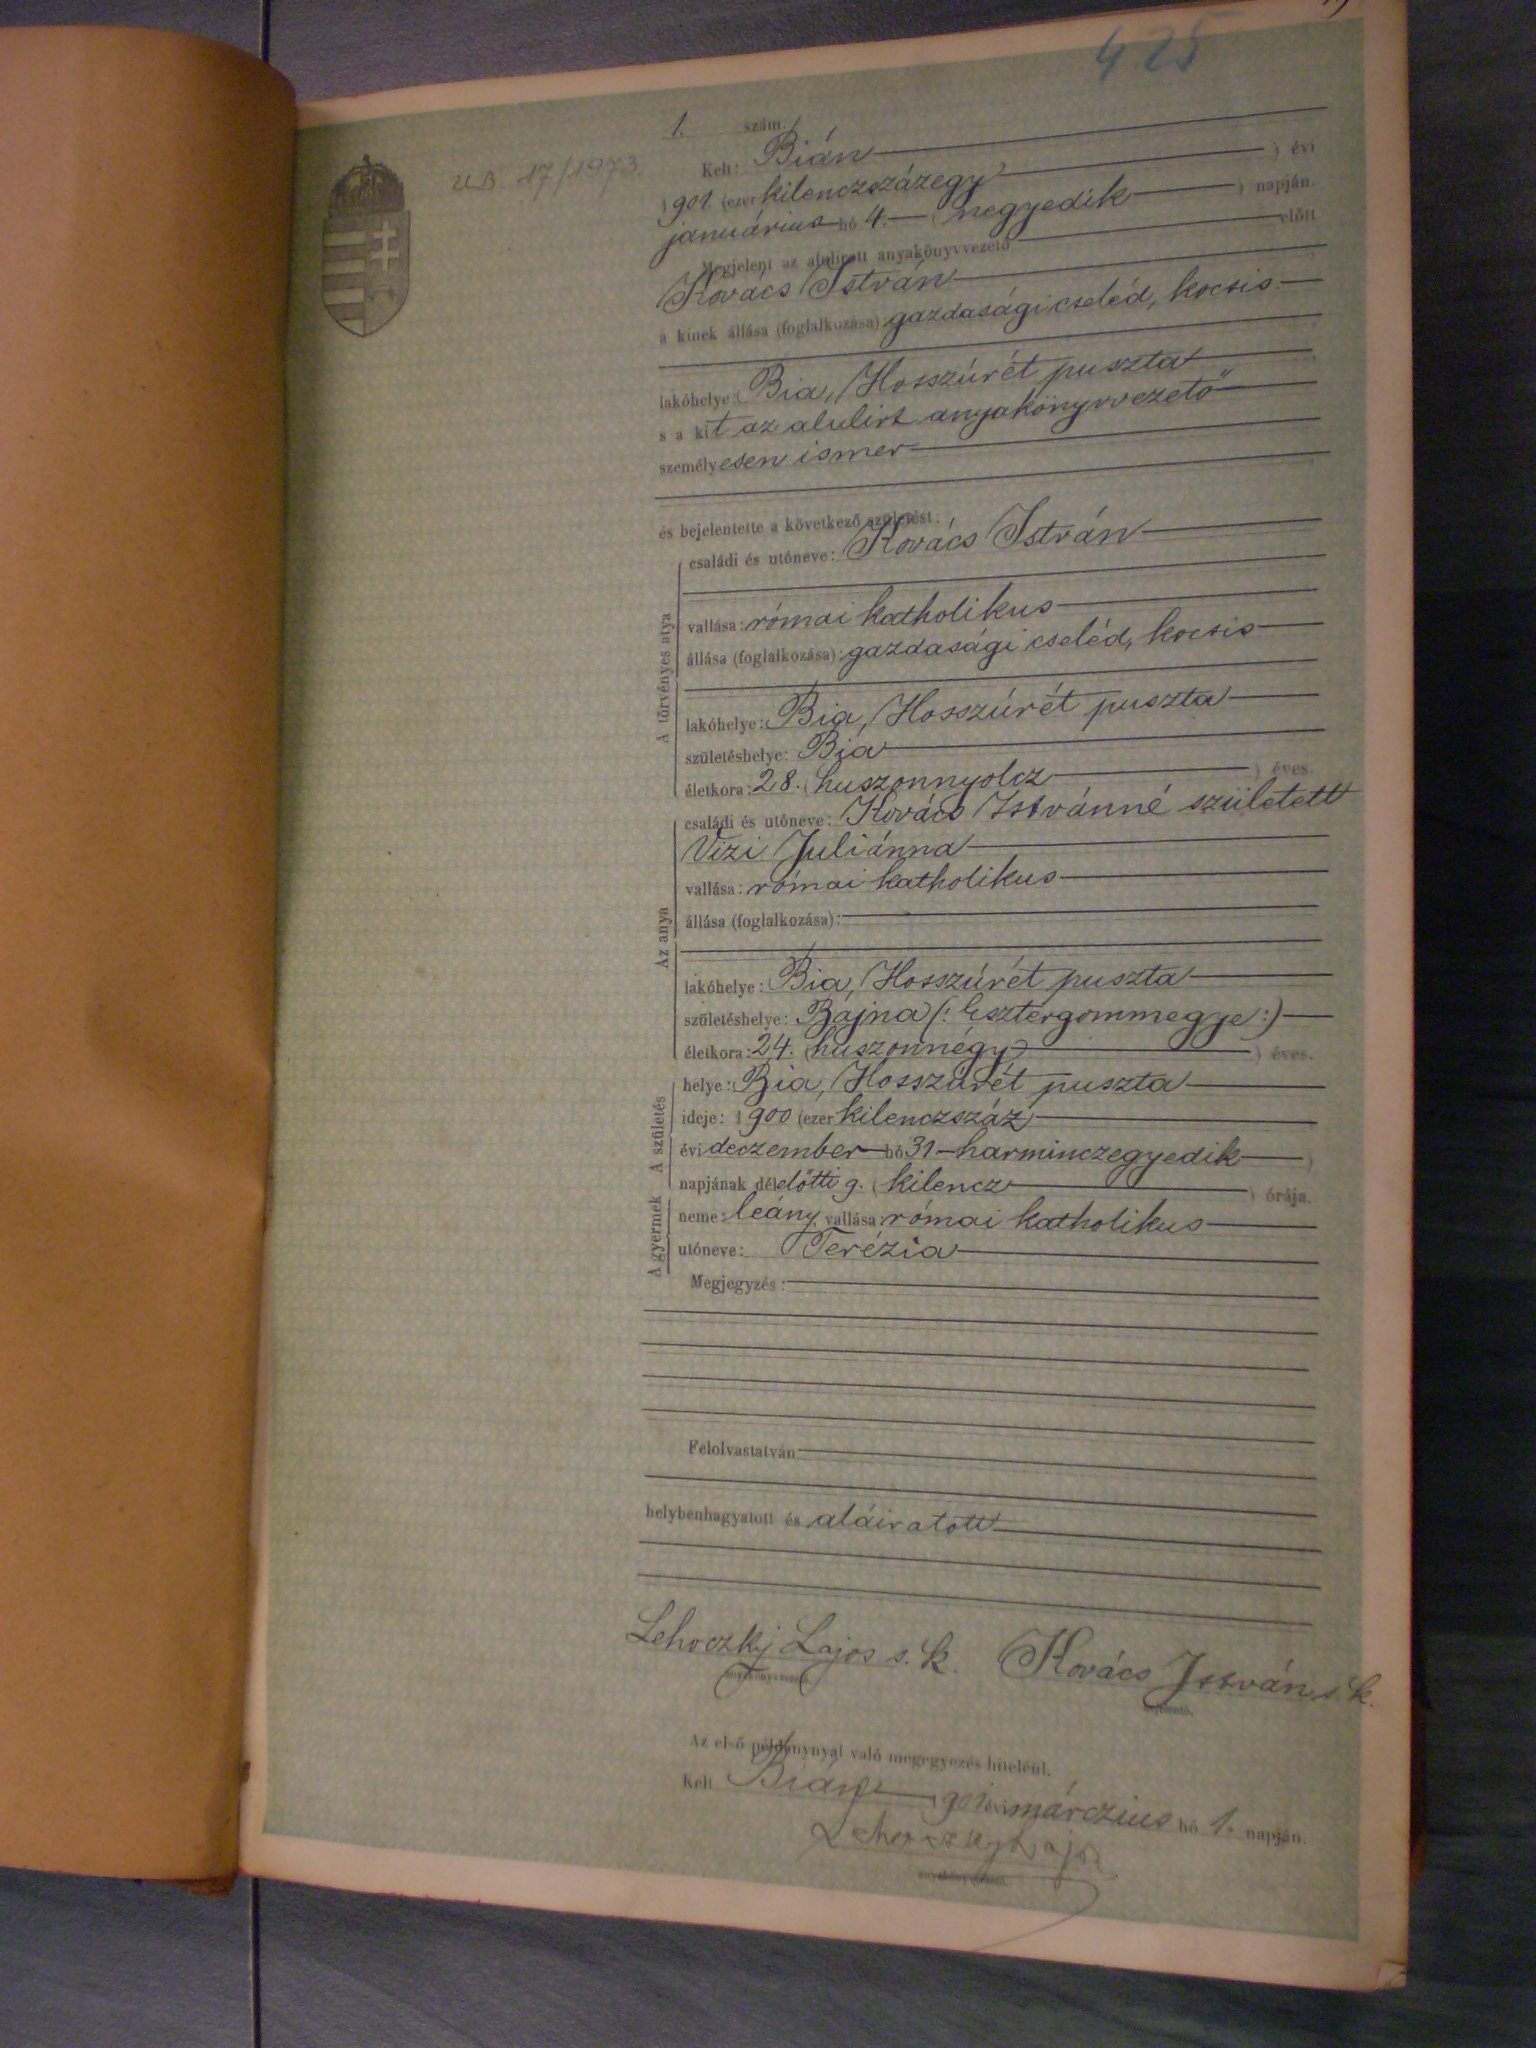 425
U.B. 17/1973.
1. szám.
Kelt: Bián
1901. (ezer kilenczszázegy) évi
januárius hó 4. (negyedik) napján.
Megjelent az alulirott anyakönyvvezető előtt
Kovács István
a kinek állása (foglalkozása) gazdasági cseléd, kocsis
lakóhelye: Bia, Hosszúrét puszta
s a kit az alulirt anyakönyvvezető
személyesen ismer
és bejelentette a következő születést:
A törvényes atya
családi és utóneve: Kovács István
vallása: római katholikus
állása (foglalkozása): gazdasági cseléd, kocsis
lakóhelye: Bia, Hosszúrét puszta
születéshelye: Bia
életkora: 28. (huszonnyolcz) éves.
Az anya
családi és utóneve: Kovács Istvánné született
Vizi Juliánna
vallása: római katholikus
állása (foglalkozása):
lakóhelye: Bia, Hosszúrét puszta
születéshelye: Bajna (: Esztergommegye :)
életkora: 24. (huszonnégy) éves.
A születés
helye: Bia, Hosszúrét puszta
ideje: 1900 (ezer kilenczszáz)
évi deczember hó 31 harminczegyedik )
napjának délelőtti 9. (kilencz) órája.
A gyermek
neme: leány, vallása: római katholikus
utóneve: Terézia
Megjegyzés:
Felolvastatván
helybenhagyatott és aláiratott
Lehoczky Lajos s. k. Kovács István s. k.
anyakönyvvezető. bejelentő.
Az első példánynyal való megegyezés hiteléül.
Kelt Bián 1901 évi márczius hó 1. napján.
Lehoczky Lajos
anyakönyvvezető.